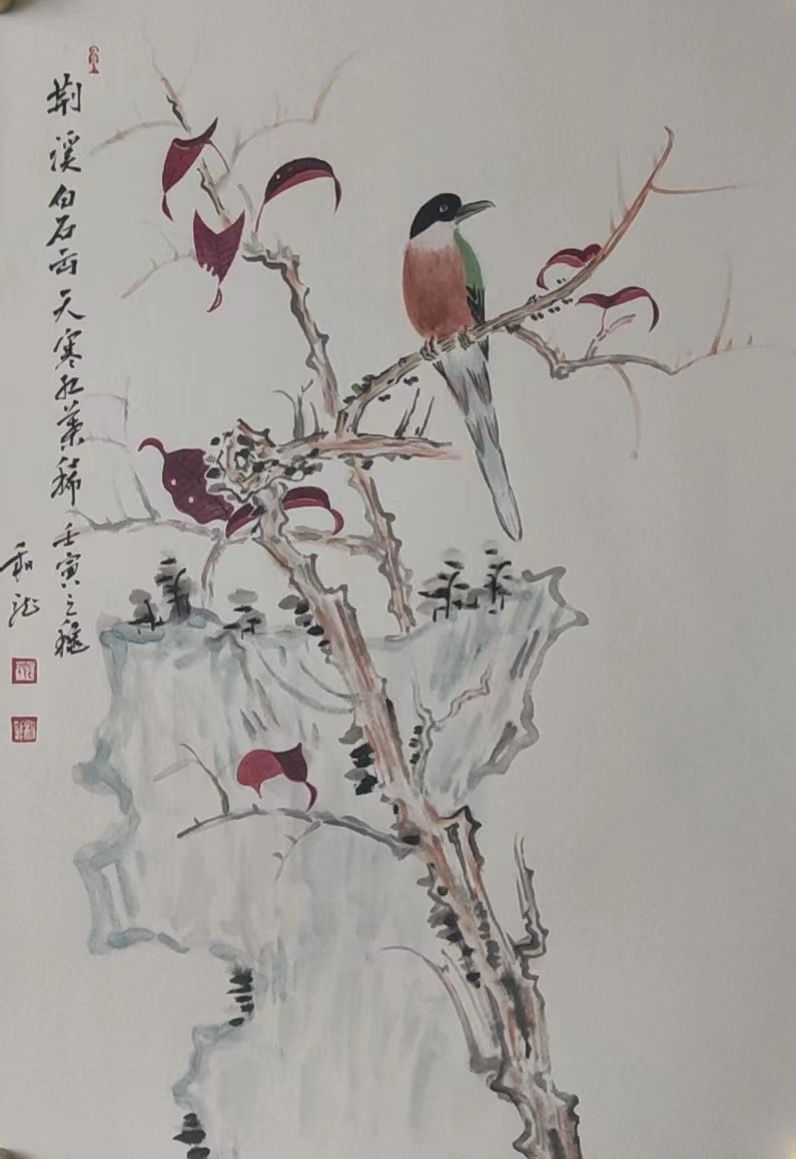 荆溪白石出天寒红叶稀 壬寅之秋
和